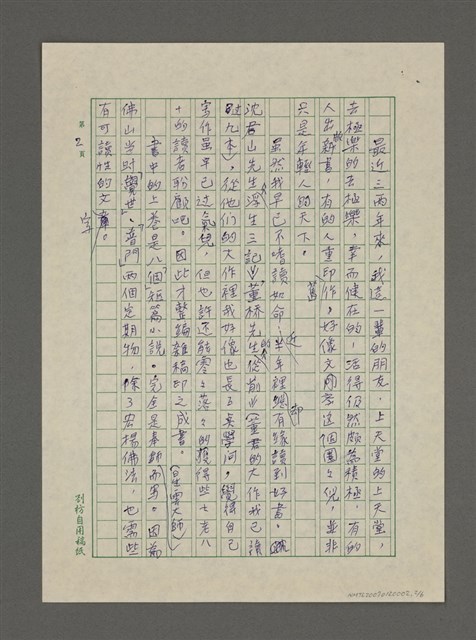 最近三兩年來，我這一輩的朋友，上天堂的上天堂，
去極樂的去極樂，幸而健在的，活得仍然頗為積極，有的
人出新書，有的人重印舊作，好像文學這個圈圈兒，並非
只是年輕人的天下。
雖然我早已不嗜讀如命，近半年裡卻有緣讀到好書，
沈君山先生「浮生三記」董橋先生的「從前」（董君的大作我已讀
過九本），從他們的大作裡我好像也長了點學問，覺得自己
寫作雖早已過氣兒，但也許還能零零落落的獲得些七老八
十的讀者盼顧吧。因此才整編雜稿印之成書。
書中的上卷是八個短篇小說。完全是奉師（星雲大師）而寫。因為
佛山當時「覺世」、「普門」兩個定期物，除了宏揚佛法，也需些
有可讀性的文字。
第2頁
劉枋自用稿紙